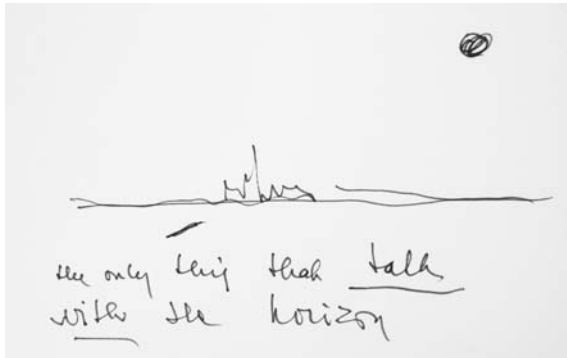 the only thing that talk
with the horizon